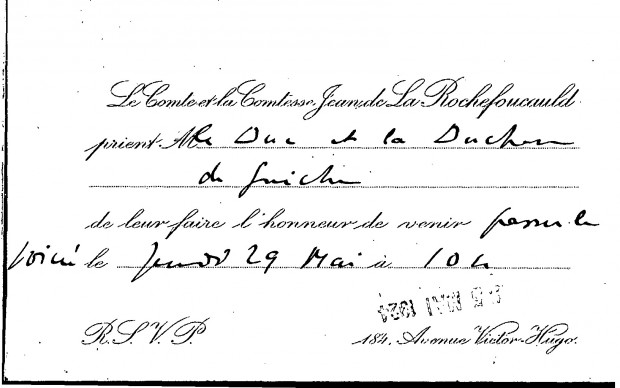 Le Comte et la Comtesse Jean de La Rochefoucauld
prient M le Duc et la Duchesse
de Guiche
de leur faire l'honneur de venir passer la
soirée le jeudi 29 Mai à 10h
25 MAI 1924
R.S.V.P. 184, Avenue Victor-Hugo.